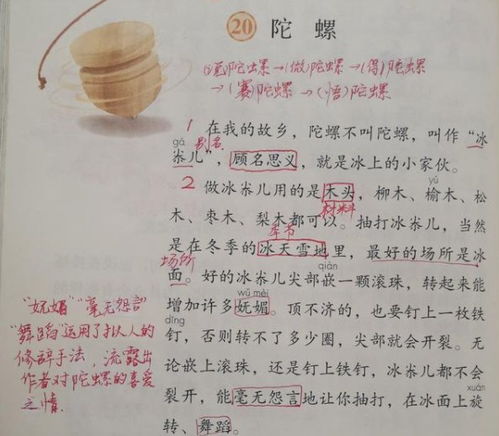 20 陀螺
(逗)陀螺→(做)陀螺→(得)陀螺
→(赛)陀螺→(悟)陀螺
1 在我的故乡，陀螺不叫陀螺，叫作“冰
gá
别名
尜儿”，顾名思义，就是冰上的小家伙。
yú
2 做冰尜儿用的是木头，柳木、榆木、松
材料
木、枣木、梨木都可以。抽打冰尜儿，当然
季节
是在冬季的冰天雪地里，最好的场所是冰
场所
qiàn
面。好的冰尜儿尖部嵌一颗滚珠，转起来能
wǔ mèi
增加许多妩媚。顶不济的，也要钉上一枚铁
dīng
钉，否则转不了多少圈，尖部就会开裂。无
论嵌上滚珠，还是钉上铁钉，冰尜儿都不会
xuán
裂开，能毫无怨言地让你抽打，在冰面上旋
转、舞蹈。
“妩媚”“毫无怨言”
“舞蹈”运用了拟人的
修辞手法，流露出
作者对陀螺的喜爱
之情.